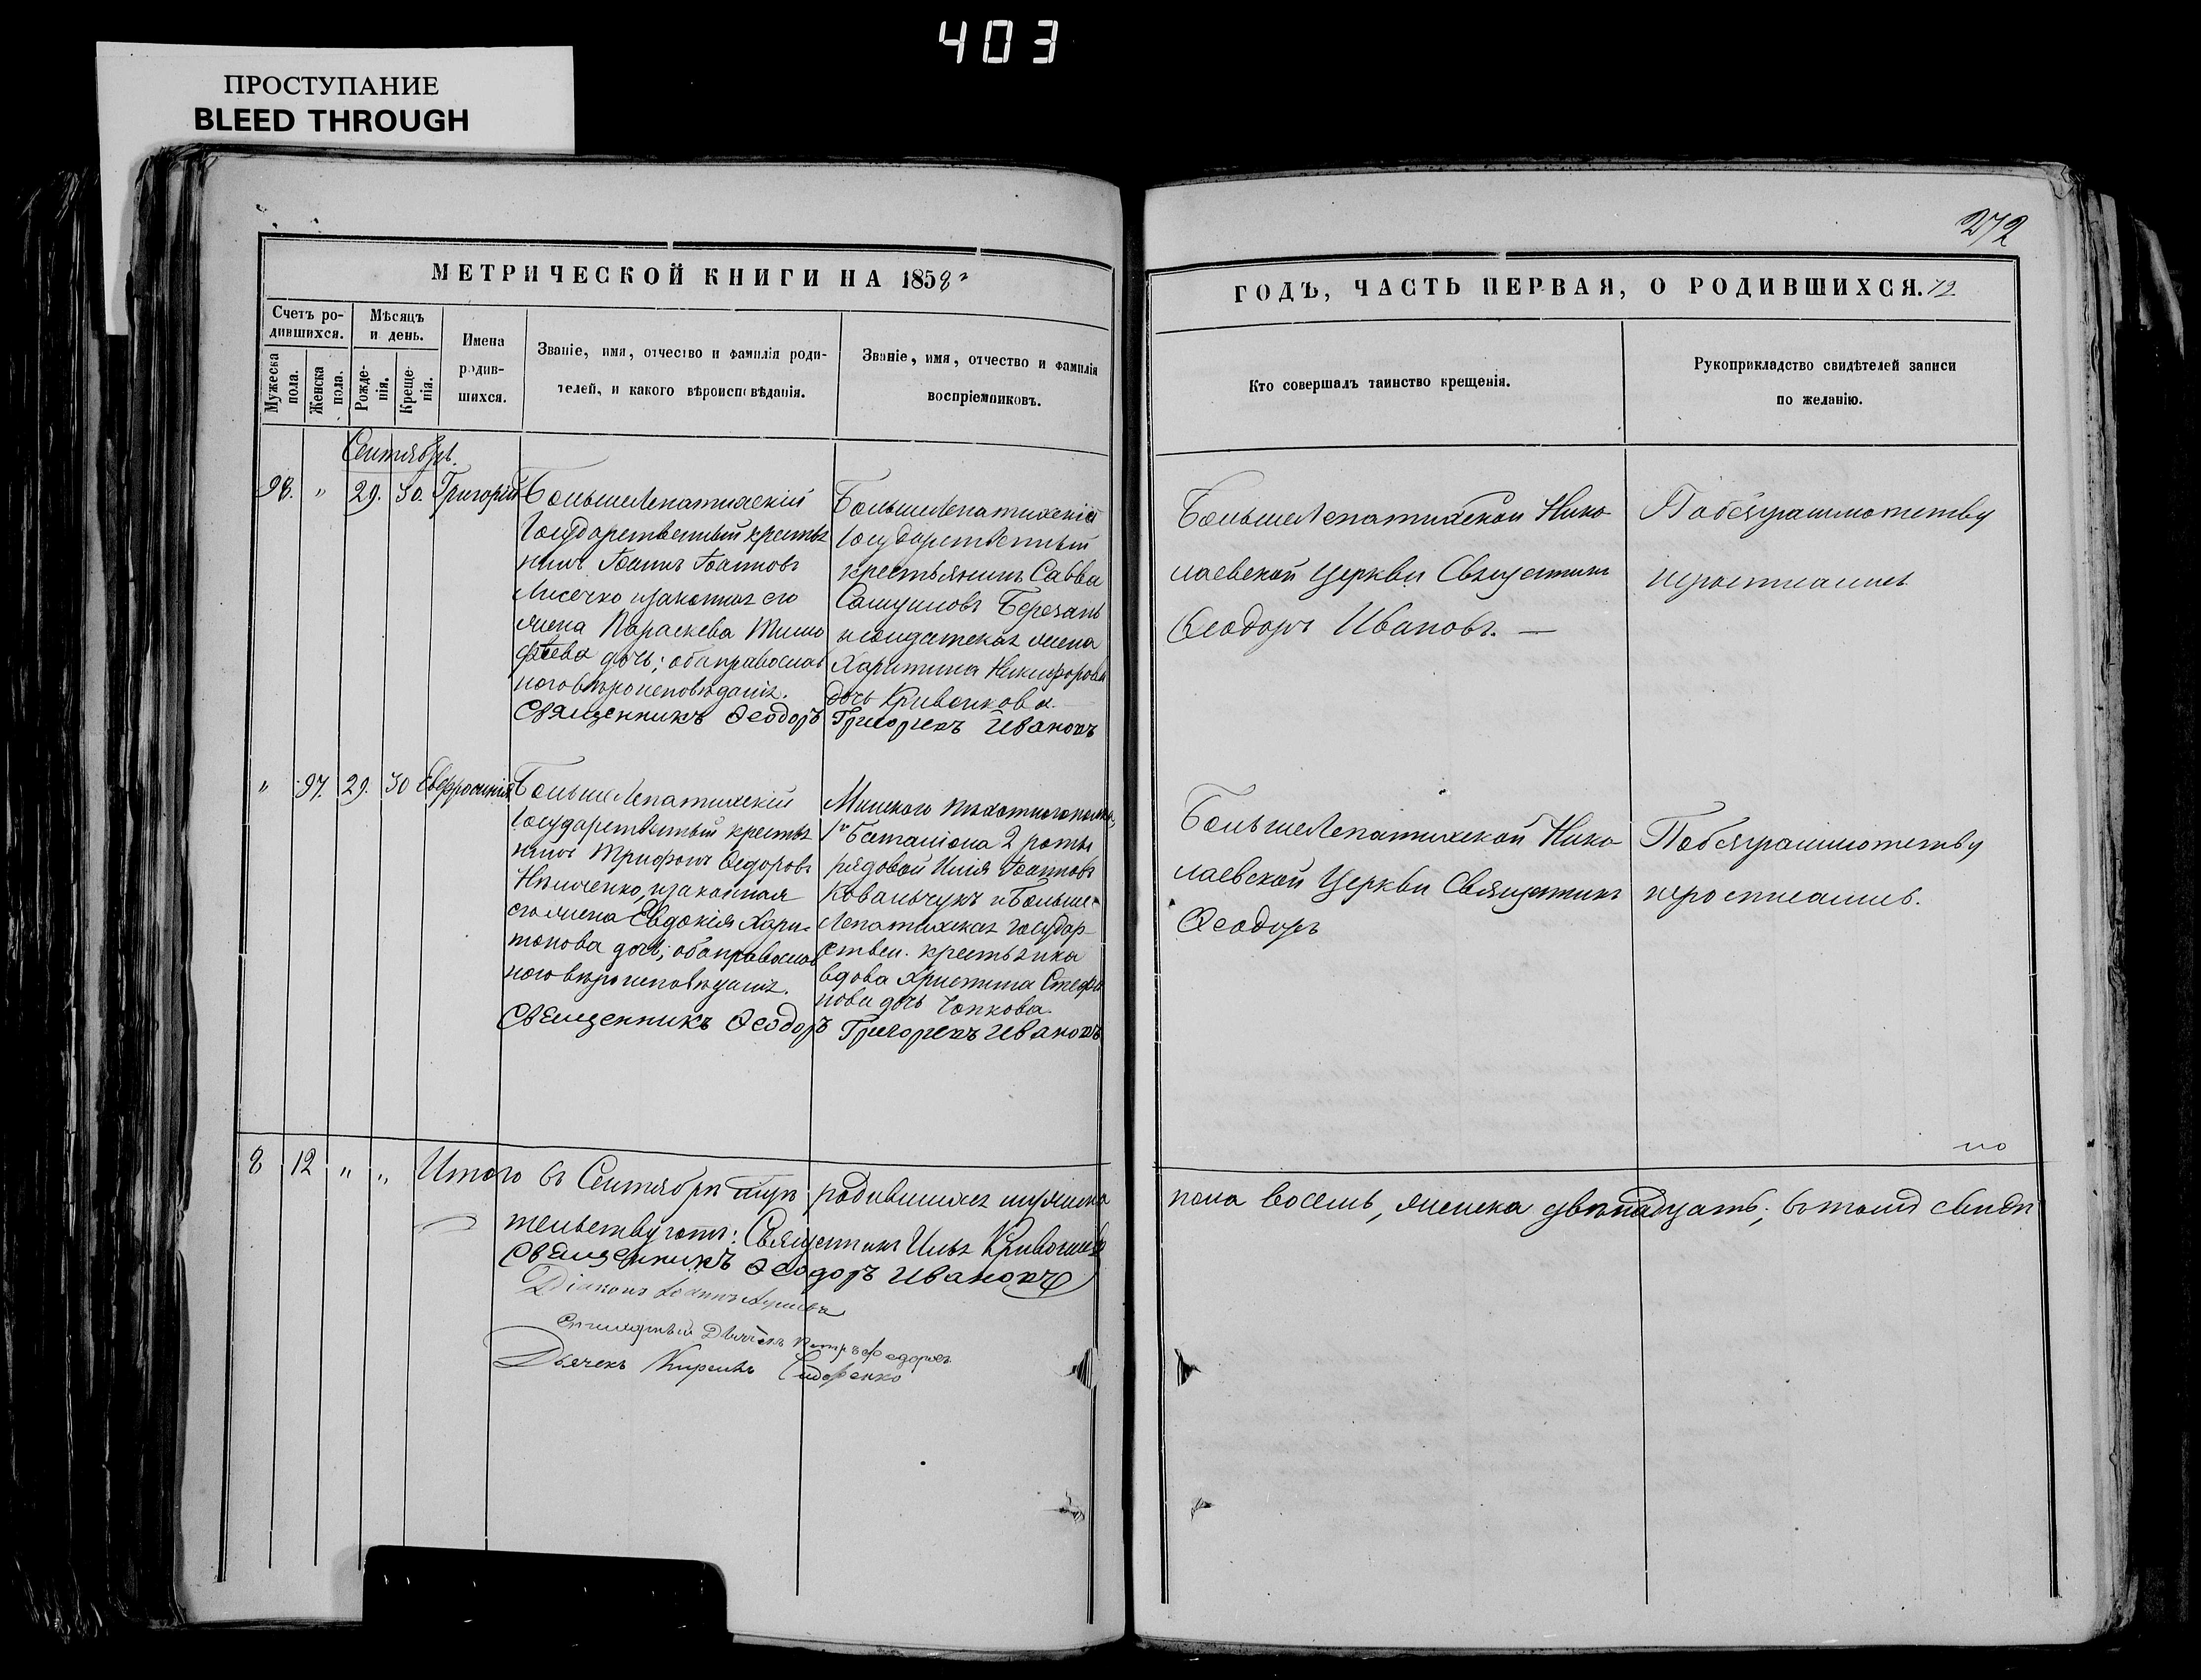 403
ПРОСТУПАНИЕ
BLEED THROUGH
272
МЕТРИЧЕСКОЙ КНИГИ НА 1858
ГОДЪ, ЧАСТЬ ПЕРВАЯ, О РОДИВШИХСЯ.
Счетъ ро-
дившихся.
Мужеска
пола.
Женска
пола.
Мѣсяцъ
и день.
Рожде-
нія.
Креще-
нія.
Имена
родив-
шихся.
Званіе, имя, отчество и фамилія роди-
телей, и какого вѣроисповѣданія.
Званіе, имя, отчество и фамилія
воспріемниковъ.
Кто совершалъ таинство крещенія.
Рукоприкладство свидѣтелей записи
по желанію.
Сентябрь.
98. " 29. 30. Григорій
БольшеЛепатихскій
Государственный крестья
нинъ Іоаннъ Іоанновъ
Лисечко и законная его
жена Параскева Тимо
феева дочь; оба православ
наго вѣроисповѣданія.
Священникъ Ѳеодоръ
БольшеЛепатихскій
Государственный
крестьянинъ Савва
Самуиловъ Березань
и солдатская жена
Харитина Никифорова
дочь Кривонкова
Григоріевъ Ивановъ
БольшеЛепатихской Нико
лаевской Церкви Священникъ
Ѳеодоръ Ивановъ. —
По безграмотству
" 97. 29. 30 Евфросинія
БольшеЛепатихскій
Государственный крестья
нинъ Трифонъ Ѳедоровъ
и законная
его жена Евдокія Хари-
тонова дочь; оба православ
наго вѣроисповѣданія.
Священникъ Ѳеодоръ
Минского пѣхотного полка,
1го Баталіона 2 роты
рядовой Илія Іоанновъ
Ковальчукъ и Больше-
Лепатихская государ-
ствен. крестьянка
вдова Христина Стефа
нова дочь
Григоріевъ Ивановъ
БольшеЛепатихской Нико
лаевской Церкви Священникъ
Ѳеодоръ
По безграмотству
8 12 " " Итого въ Сентябрѣ родившихся мужеска
пола восемь, женска двѣнадцать; въ томъ свидѣ
тельствуютъ: Священникъ Илья
Священникъ Ѳеодоръ Ивановъ
Діаконъ Іоаннъ
Дьячекъ Петръ Федоровъ
Дьячекъ Кирилъ Сидоренко